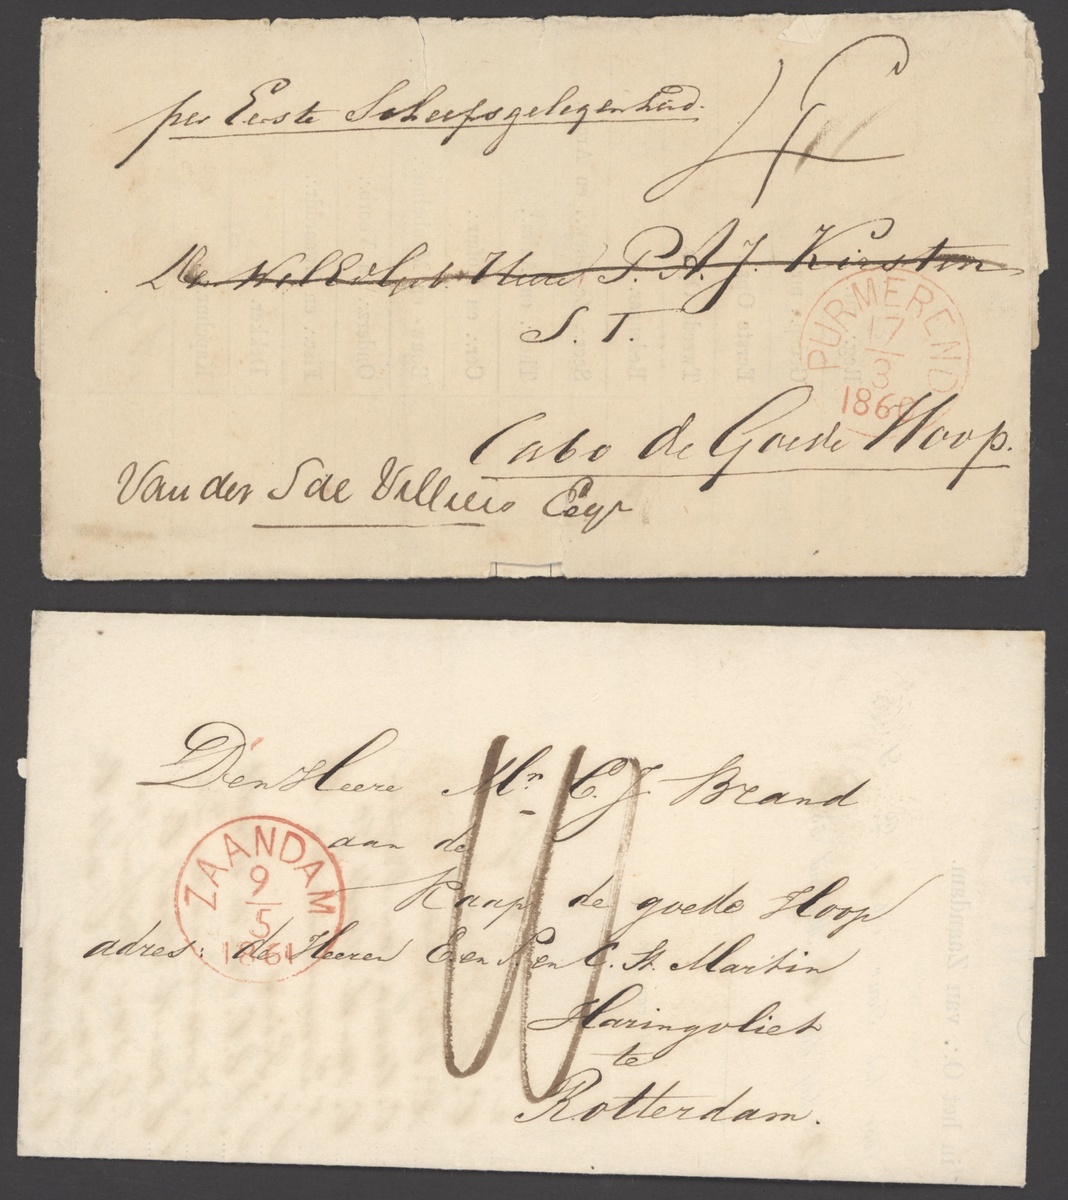 per Eerste Scheepsgelegenheid.
De Wel Ed. Heer P. A. J. Kirsten
S. T.
PURMEREND
17/8
1860
Cabo de Goede Hoop.
Van der S de Villiers Esqr
Den Heere Mr. C. J. Brand
aan de
Kaap de goede Hoop
ZAANDAM
9/5
1861
adres: de Heeren E. en C. St. Martin
Haringvliet
te
Rotterdam.